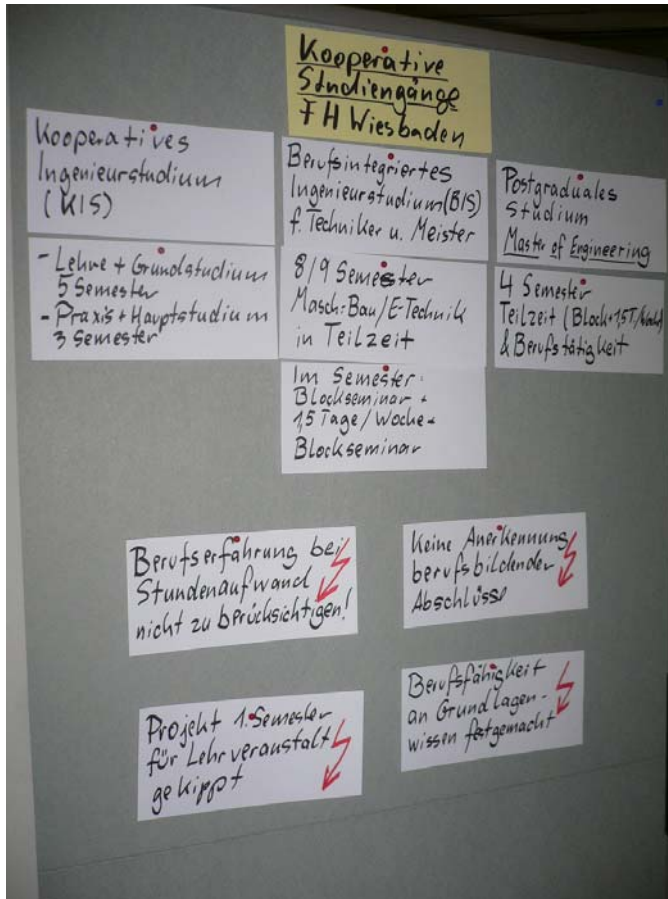 Kooperative
Studiengänge
FH Wiesbaden
Kooperatives
Ingenieurstudium
(KIS)
- Lehre + Grundstudium
5 Semester
- Praxis + Hauptstudium
3 Semester
Berufsintegriertes
Ingenieurstudium (BIS)
f. Techniker u. Meister
8/9 Semester
Masch.-Bau/E-Technik
in Teilzeit
Im Semester:
Blockseminar +
1,5 Tage/Woche +
Blockseminar
Postgraduales
Studium
Master of Engineering
4 Semester
Teilzeit (Block + 1,5T/Woche)
& Berufstätigkeit
Berufserfahrung bei
Stundenaufwand
nicht zu berücksichtigen!
Keine Anerkennung
berufsbildender
Abschlüsse
Projekt 1. Semester
für Lehrveranstalt
gekippt
Berufsfähigkeit
an Grundlagen-
wissen festgemacht